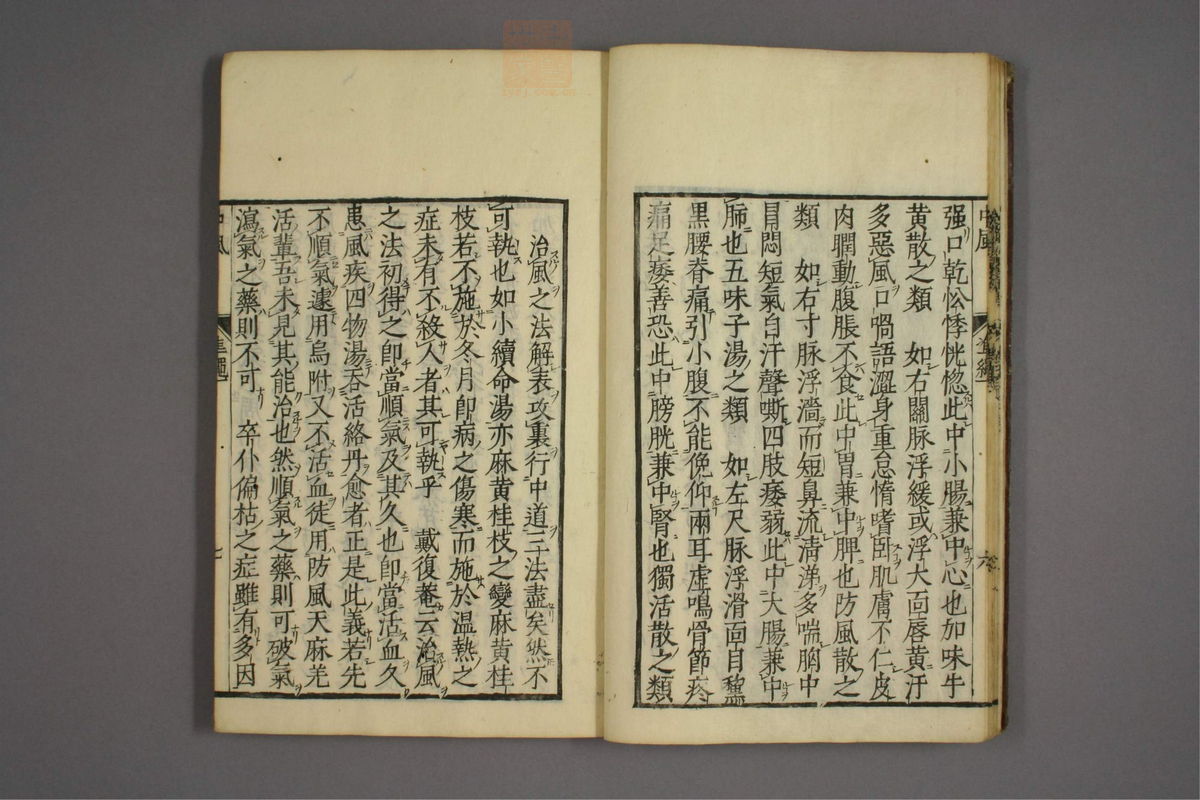 强口乾忪悸恍惚此中小腸兼中心也加味牛
黄散之類　如右關脉浮緩或浮大面唇黄汗
多惡風口喎語澀身重怠惰嗜卧肌膚不仁皮
肉瞤動腹脹不食此中胃兼中脾也防風散之
類　如右寸脉浮濇而短鼻流清涕多喘胸中
冒悶短氣自汗聲嘶四肢痿弱此中大腸兼中
肺也五味子湯之類　如左尺脉浮滑面目黧
黒腰脊痛引小腹不能俛仰兩耳虚鳴骨節疼
痛足痿善恐此中膀胱兼中腎也獨活散之類
中風
準繩
六
治風之法解表攻裏行中道三法盡矣然不
可執也如小續命湯亦麻黄桂枝之變麻黄桂
枝若不施於冬月即病之傷寒而施於温熱之
症未有不殺人者其可執乎　戴復菴云治風
之法初得之即當順氣及其久也即當活血久
患風疾四物湯吞活絡丹愈者正是此義若先
不順氣遽用烏附又不活血徒用防風天麻羌
活輩吾未見其能治也然順氣之藥則可破氣
瀉氣之藥則不可　卒仆偏枯之症雖有多因